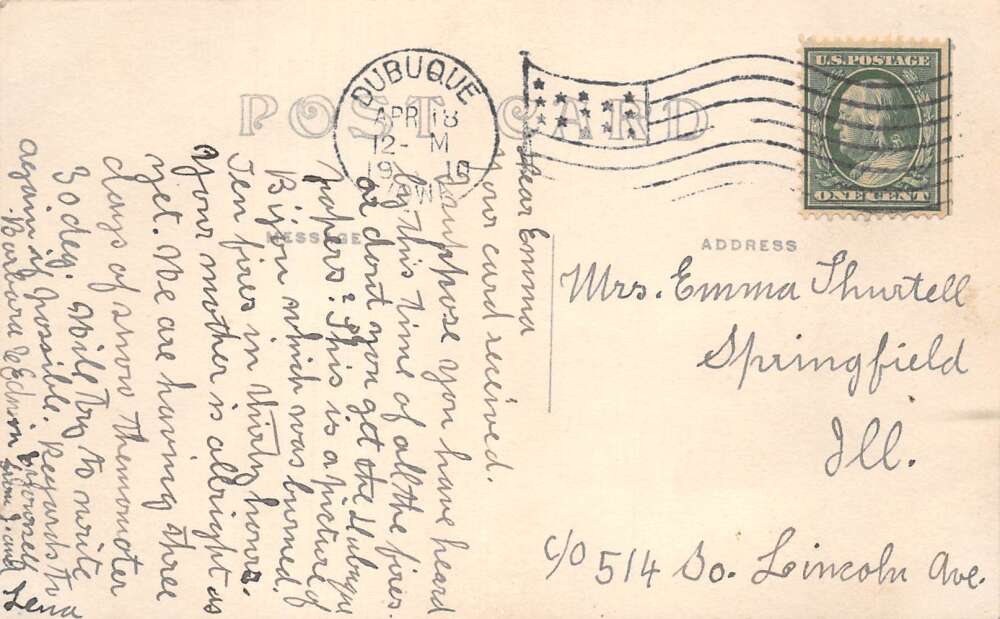 POST CARD
DUBUQUE
APR 18
12- M
19
IOWA
U.S. POSTAGE
ONE CENT
MESSAGE
ADDRESS
Dear Emma
Your card received.
I suppose you have heard
by this time of all the fires
or dont you get the Dubuque
papers? This is a picture of
Bijou which was burned.
Ten fires in thirty hours.
Your mother is allright as
yet. We are having three
days of snow themometer
30 deg. Will try to write
again if possible. Regards to
Barbara Edwin yourself
from J. and
Lena
Mrs. Emma Thurtell
Springfield
Ill.
c/o 514 So. Lincoln Ave.